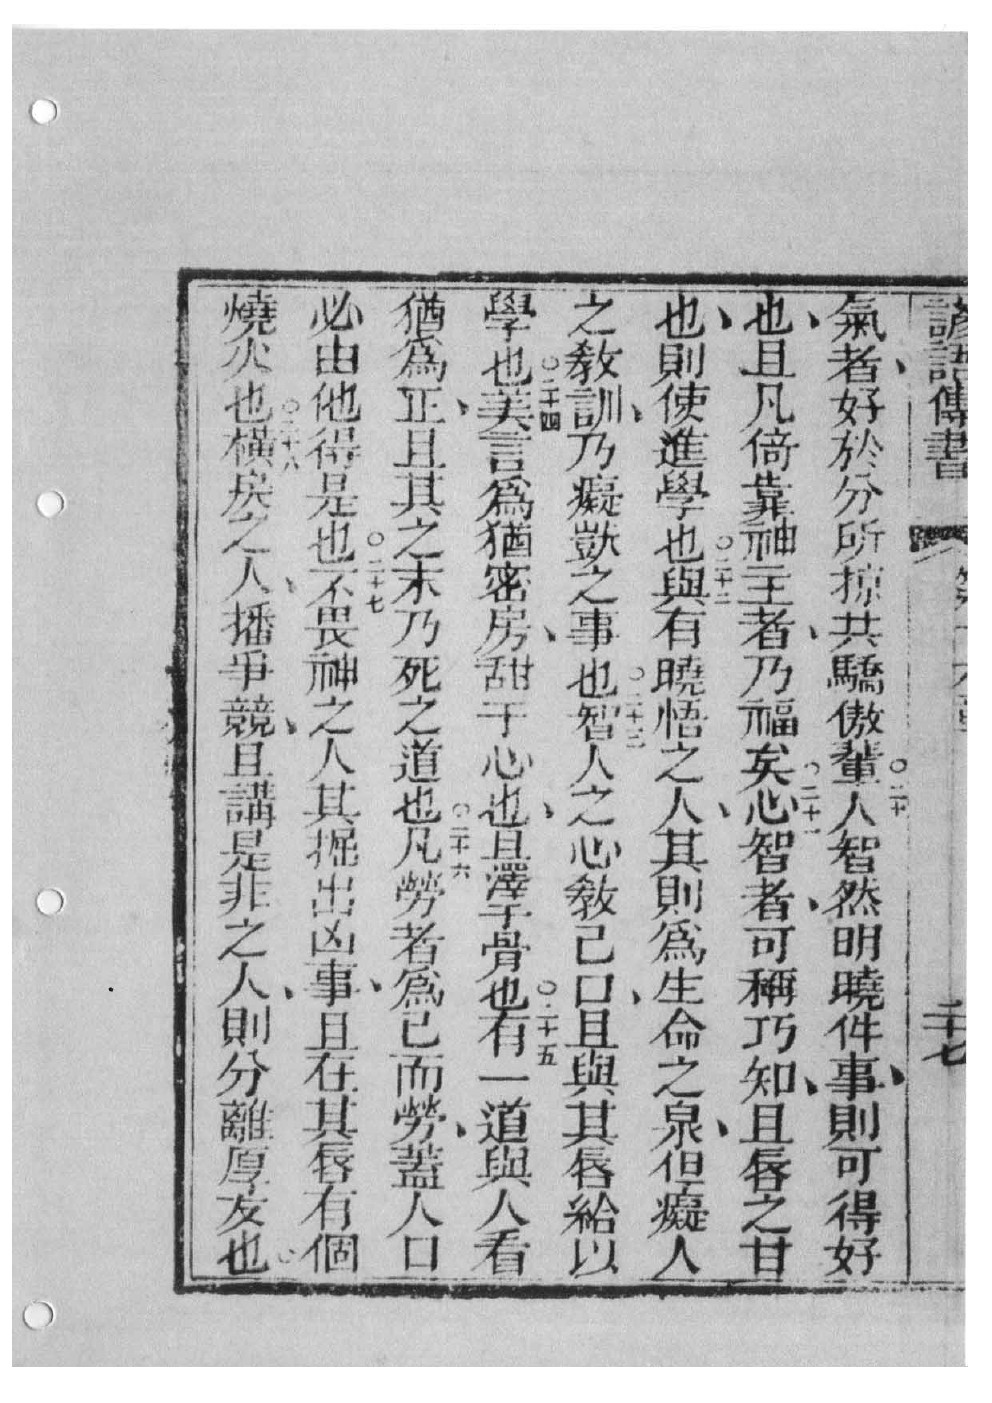 諺語傳書 第十六章 二十七
氣者好於分所掠共驕傲輩○二十人智然明曉件事則可得好
也且凡倚靠神主者乃福矣○二十一心智者可稱巧知且唇之甘
也則使進學也○二十二與有曉悟之人其則爲生命之泉但癡人
之教訓乃癡獃之事也○二十三智人之心教己口且與其唇給以
學也○二十四美言爲猶密房甜于心也且澤于骨也○二十五有一道與人看
猶爲正且其之末乃死之道也○二十六凡勞者爲己而勞蓋人口
必由他得是也○二十七不畏神之人其掘出凶事且在其唇有個
燒火也○二十八橫戾之人播爭競且講是非之人則分離厚友也○